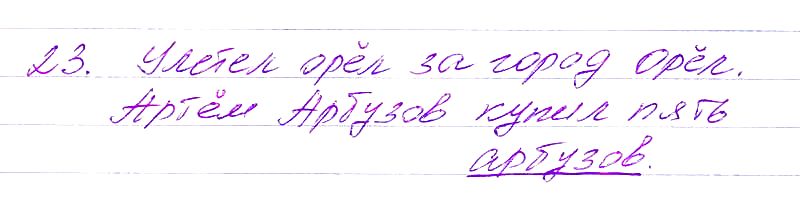 23. Улетел орёл за город Орёл.
Артём Арбузов купил пять
арбузов.